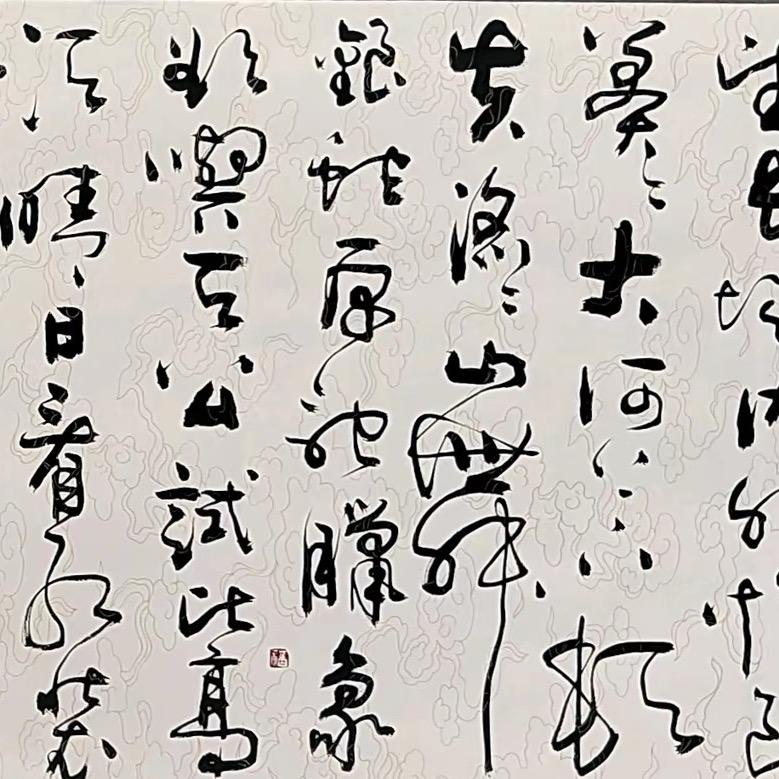 望長城内外惟餘
莽々大河上下頓
失滔々山舞
銀蛇原馳臘象
欲與天公試比高
須晴日看紅裝